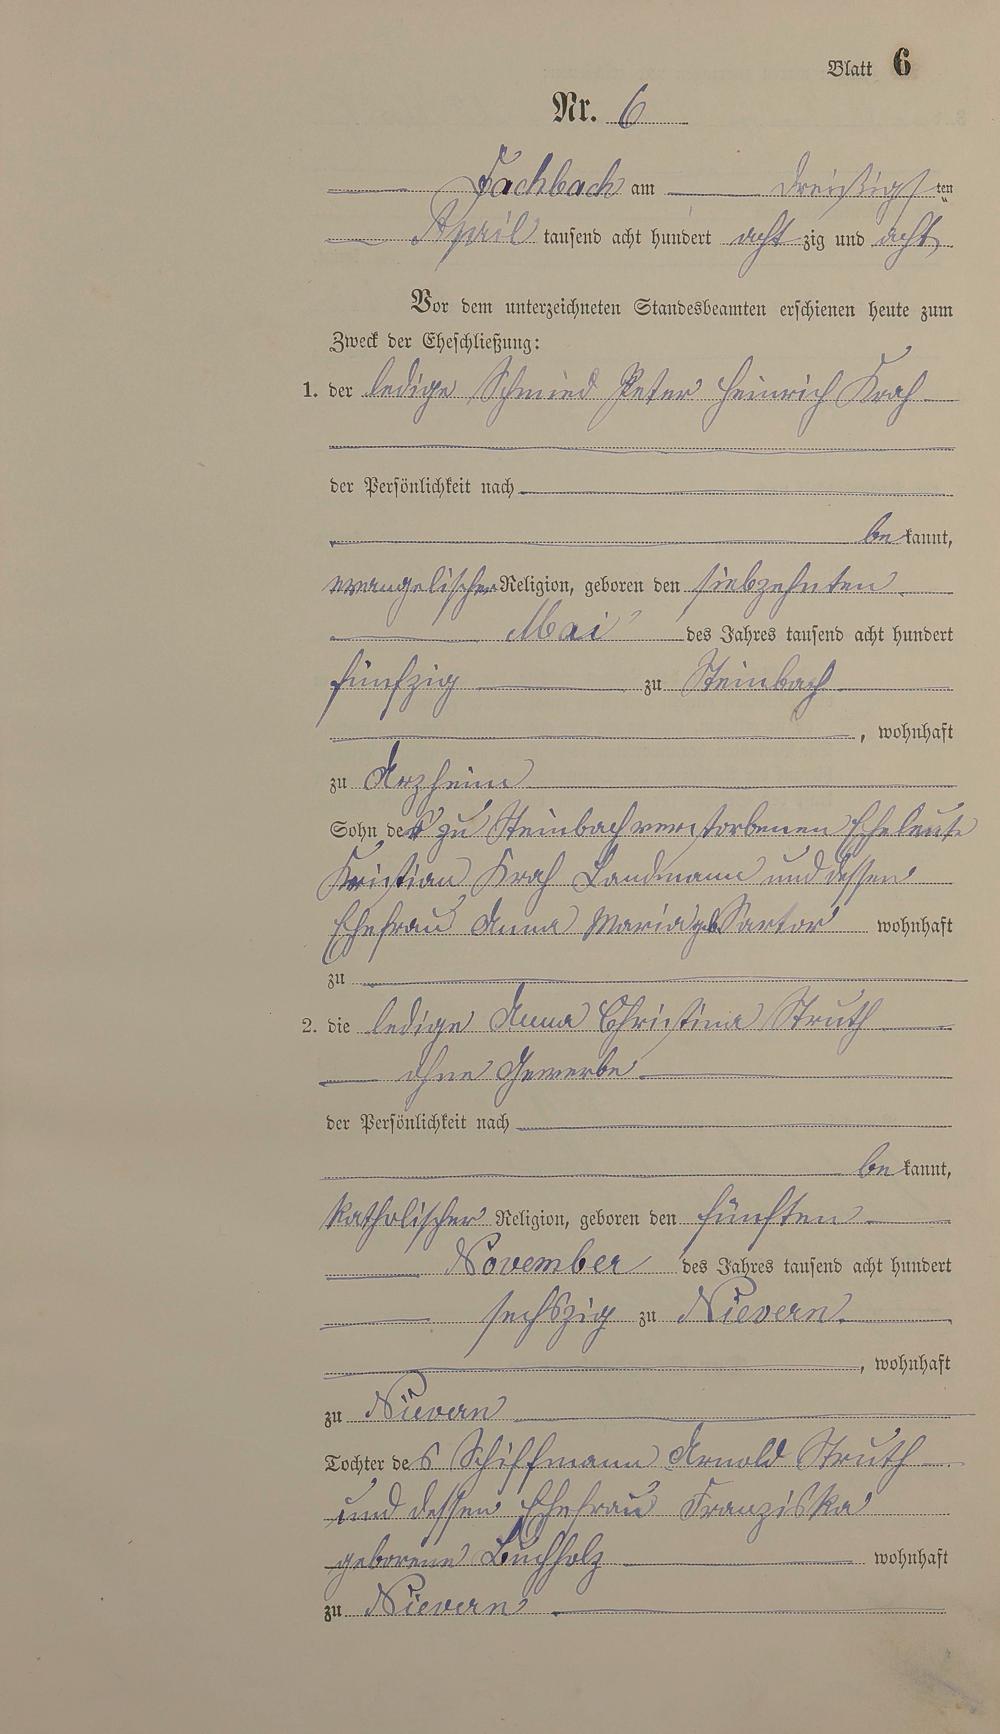 Blatt 6
Nr. 6
Fachbach am dreißigsten
April tausend acht hundert achtzig und acht
Vor dem unterzeichneten Standesbeamten erschienen heute zum
Zweck der Eheschließung:
1. der ledige Schmied Peter Heinrich Krah
der Persönlichkeit nach
bekannt,
evangelischer Religion, geboren den siebzehnten
Mai des Jahres tausend acht hundert
fünfzig zu Steinbach
, wohnhaft
zu Arzheim
Sohn der zu Steinbach verstorbenen Eheleute
Kristian Krah Landmann und dessen
Ehefrau Anna Maria geb Sartor wohnhaft
zu
2. die ledige Anna Christina Struth
ohne Gewerbe
der Persönlichkeit nach
bekannt,
katholischer Religion, geboren den fünften
November des Jahres tausend acht hundert
sechszig zu Nievern
, wohnhaft
zu Nievern
Tochter des Schiffmann Arnold Struth
und dessen Ehefrau Franziska
geborene Buchholz wohnhaft
zu Nievern